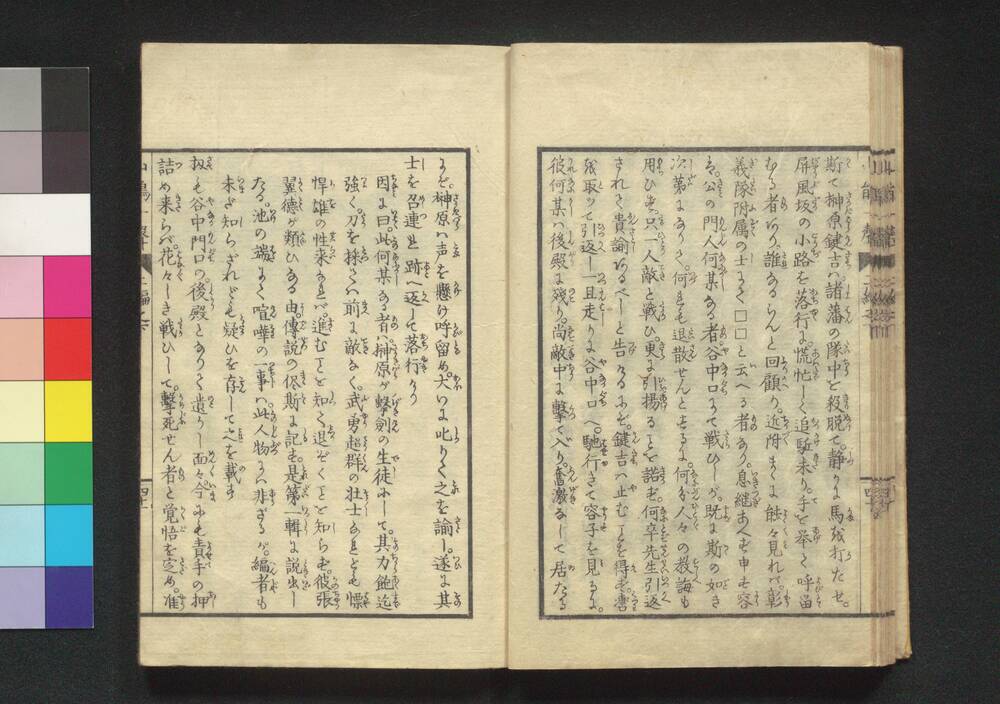 斯て榊原鍵吉ハ諸藩の隊中を殺脱て。静かに馬を打たせ。
屏風坂の小路を落行に。慌忙しく追駈来り。手を挙て呼留
むる者あり。誰なるらんと回顧り。近附まくに能々見れバ。彰
義隊附属の士にて□□と云へる者なり。息継あへず申す容
る。公の門人何某なる者。谷中口にて戦ひしが。既に斯の如き
次第になりても。何も退散せんとするに。何分人々の教誨も
用ひず。只一人敵と戦ひ。更に引揚ることを諾ず。何卒先生引返
されて貴諭あるべしと告けるにぞ。鍵吉ハ止むことを得ず。轡
を取つて引返し。一且走りに谷中口へ。馳行きて容子を見るに。
彼何某ハ後殿に残り。尚敵中に撃て入り。奮激なして居たる
にぞ。榊原ハ声を懸け呼留め。大いに叱りて之を諭し。遂に其
士を召連れ跡へ返して落行けり
因に曰。此何某なる者ハ榊原が撃剣の生徒にして。其力飽迄
強く。刀を採てハ前に敵なく。武勇超群の壮士なれども慓
悍雄の性来なれバ。進むことを知て退ぞくことを知らず。彼張
翼徳が類ひなる由。傳説の侭斯に記す。是第一輯に説出し
たる。池の端にて喧嘩の一事ハ。此人物にハ非ざるか。編者も
未だ知らざれども疑ひを存して之を載す
扨も谷中門口の後殿となりて遺りし面々。今にも責手の押
詰め来らバ。花々しき戦ひして。撃死せん者と覚悟を定め。准